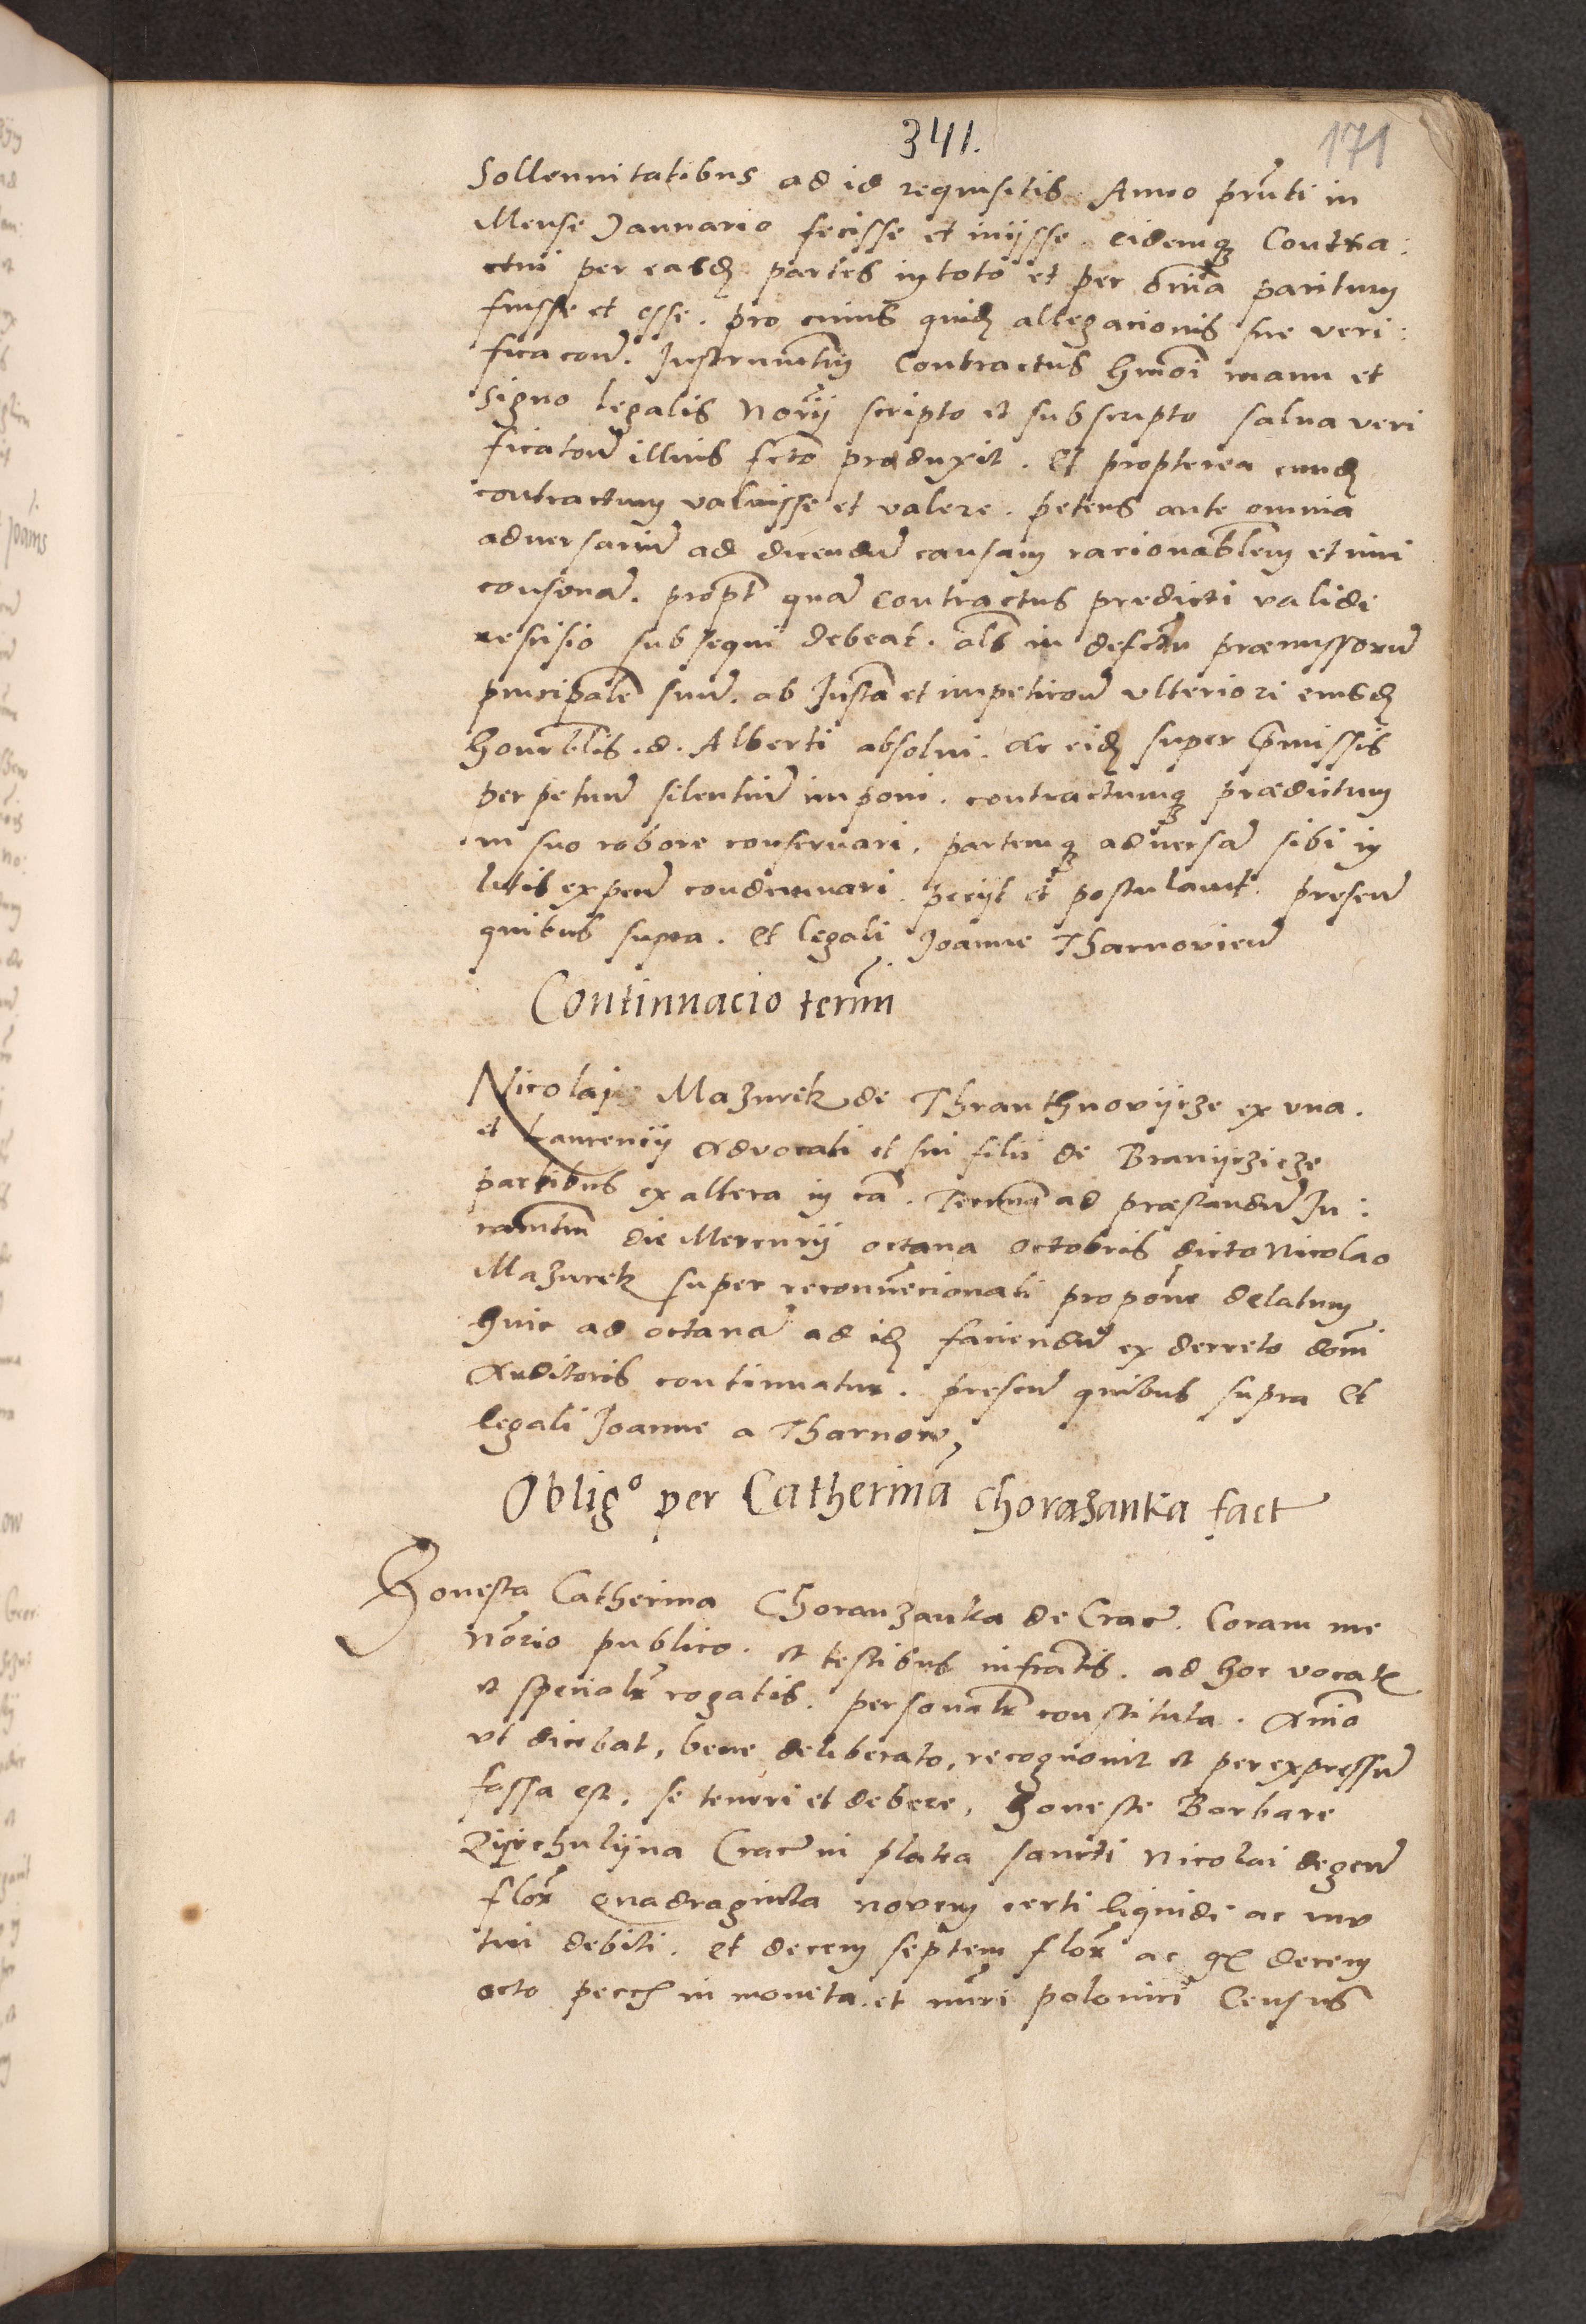 341.
171
Sollennitatibus ad id requisitis. Anno prnti in
Mense Januario fecisse et inijsse. eidemq Contra:
ctui per easd partes in toto et per omia paritum
fuisse et esse. pro cuius quid allegacionis sue veri:
ficacone. Instrumtum Contractus hmoi manu et
signo legalis Norij scripto et subscripto salua veri
ficatone illius fcto produxit. et propterea eund
contractum valuisse et valere. petens ante omnia
aduersariu ad dicendu causam racionablem et iuri
consona. propt qua contractus predicti validi
rescisio subsequi debeat. als in defectu præmissoru
principale suu. ab Insta et impeticone vlteriori eiusd
honorblis. d. Alberti absolui. Ac eid super pmissis
perpetuu silentiu imponi. contractumq prædictum
in suo robore conseruari. partemq aduersa sibi in
litis expen condemnari. pecijt et postulauit. presen
quibus supra. et legali Joanne Tharnovien
Continuacio termi
Nicolaj Mazurek de Thranthnovijcze ex vna.
et Laurencij Advocati et sui filii de Branijczicze
partibus ex altera in ca. Termin ad præstandu Iu:
ramtum die Mercurij octaua octobris dicto Nicolao
Mazurek super reconuecionali propone delatum
huic ad octaua ad id faciendu ex decreto domi
Auditoris continuatur. presen quibus supra et
legali Joanne a Tharnow,
Oblig° per Catherina Chorazanka fact
Honesta Catherina Choranzanka de Crac. Coram me
Norio publico. et testibus infratis. ad hoc vocat
et specialr rogatis. personalr constituta. Animo
vt dicebat, bene deliberato, recognouit et per expressu
fassa est, se teneri et debere, honeste Barbare
Zijrchulijna Crac in platea sancti Nicolai degen
flor Quadraginta novem certi liquidi ac mu
tui debiti. et decem septem flor ac gr decem
octo pecch in moneta. et numri polonici Census